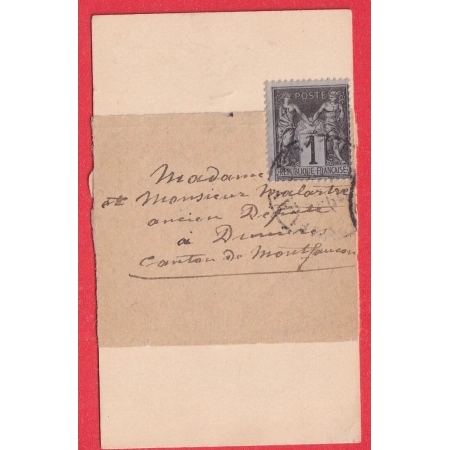 POSTE
1
REPUBLIQUE FRANÇAISE
Madame
et Monsieur Malartre
ancien Député
à Dunières
Canton de Montfaucon